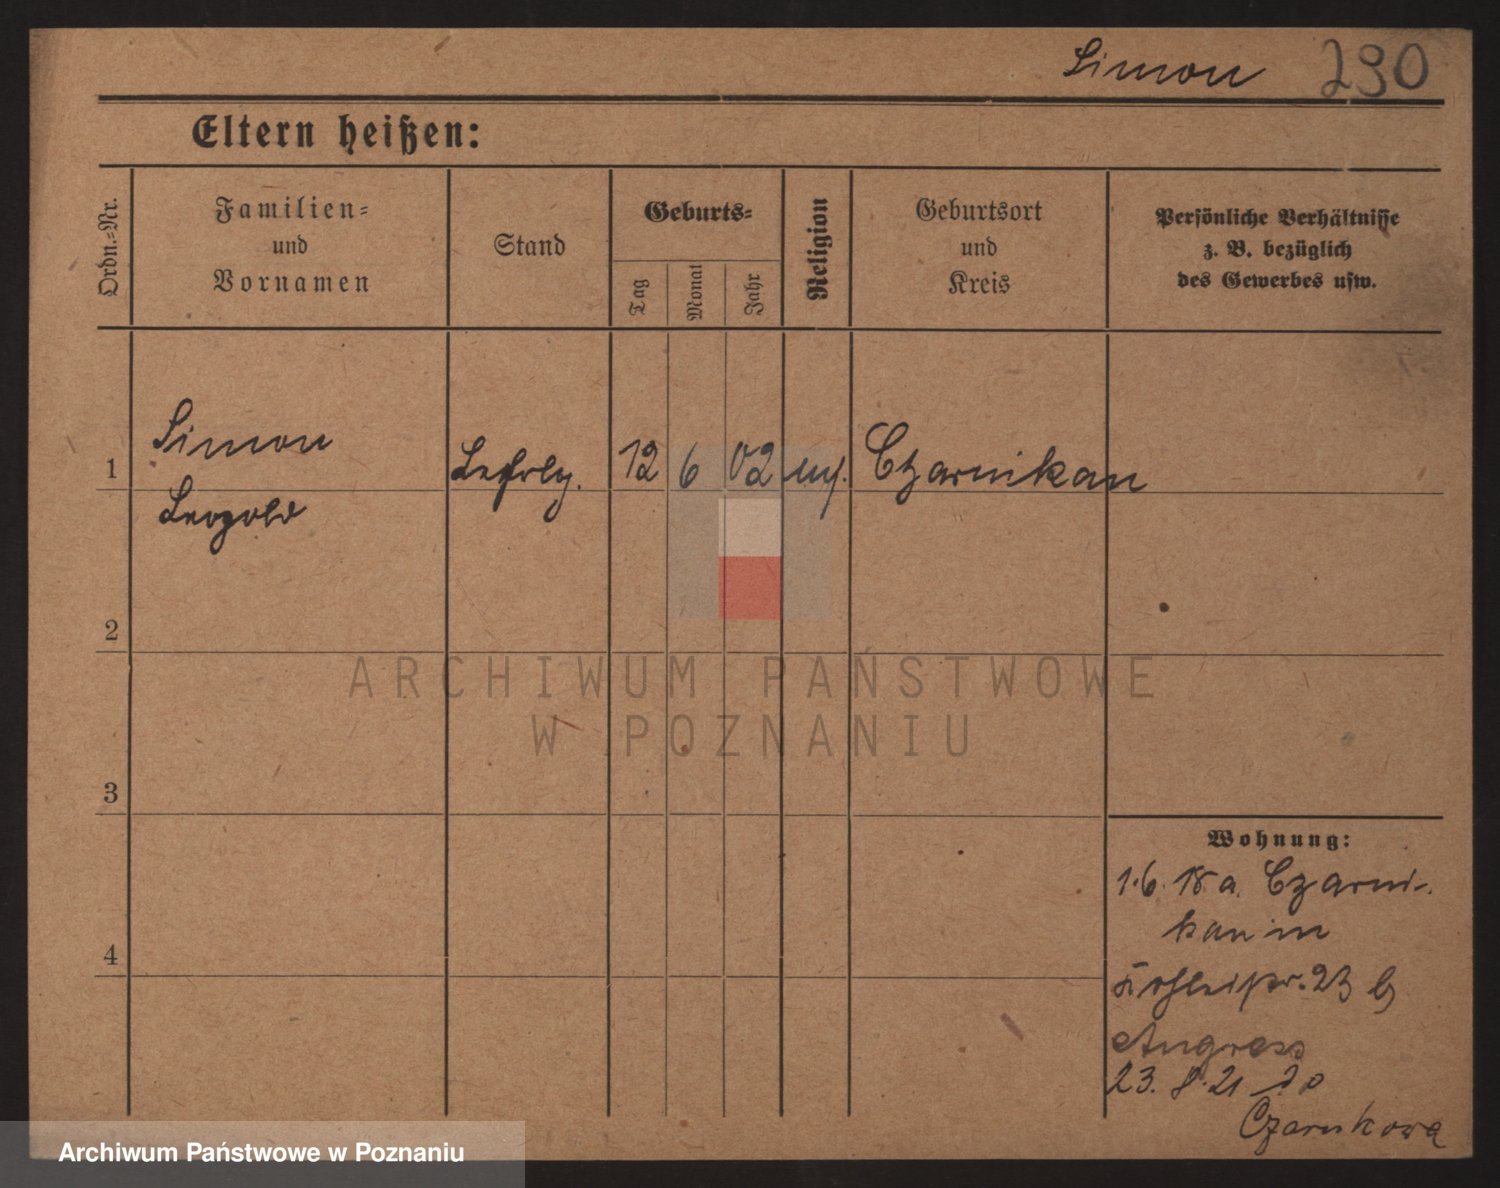 Simon 290
Eltern heißen:
Ordn.-Nr.
Familien-
und
Vornamen
Stand
Geburts-
Tag
Monat
Jahr
Religion
Geburtsort
und
Kreis
Persönliche Verhältnisse
z. B. bezüglich
des Gewerbes usw.
1 Simon Lehrlg. 12 6 02 Czarnikau
Leopold
2
3
4
Wohnung:
1.6.18 a. Czarni-
kau in
23 b
Angress
23. 8. 21 do
Czarnkowa
ARCHIWUM PAŃSTWOWE
W POZNANIU
Archiwum Państwowe w Poznaniu